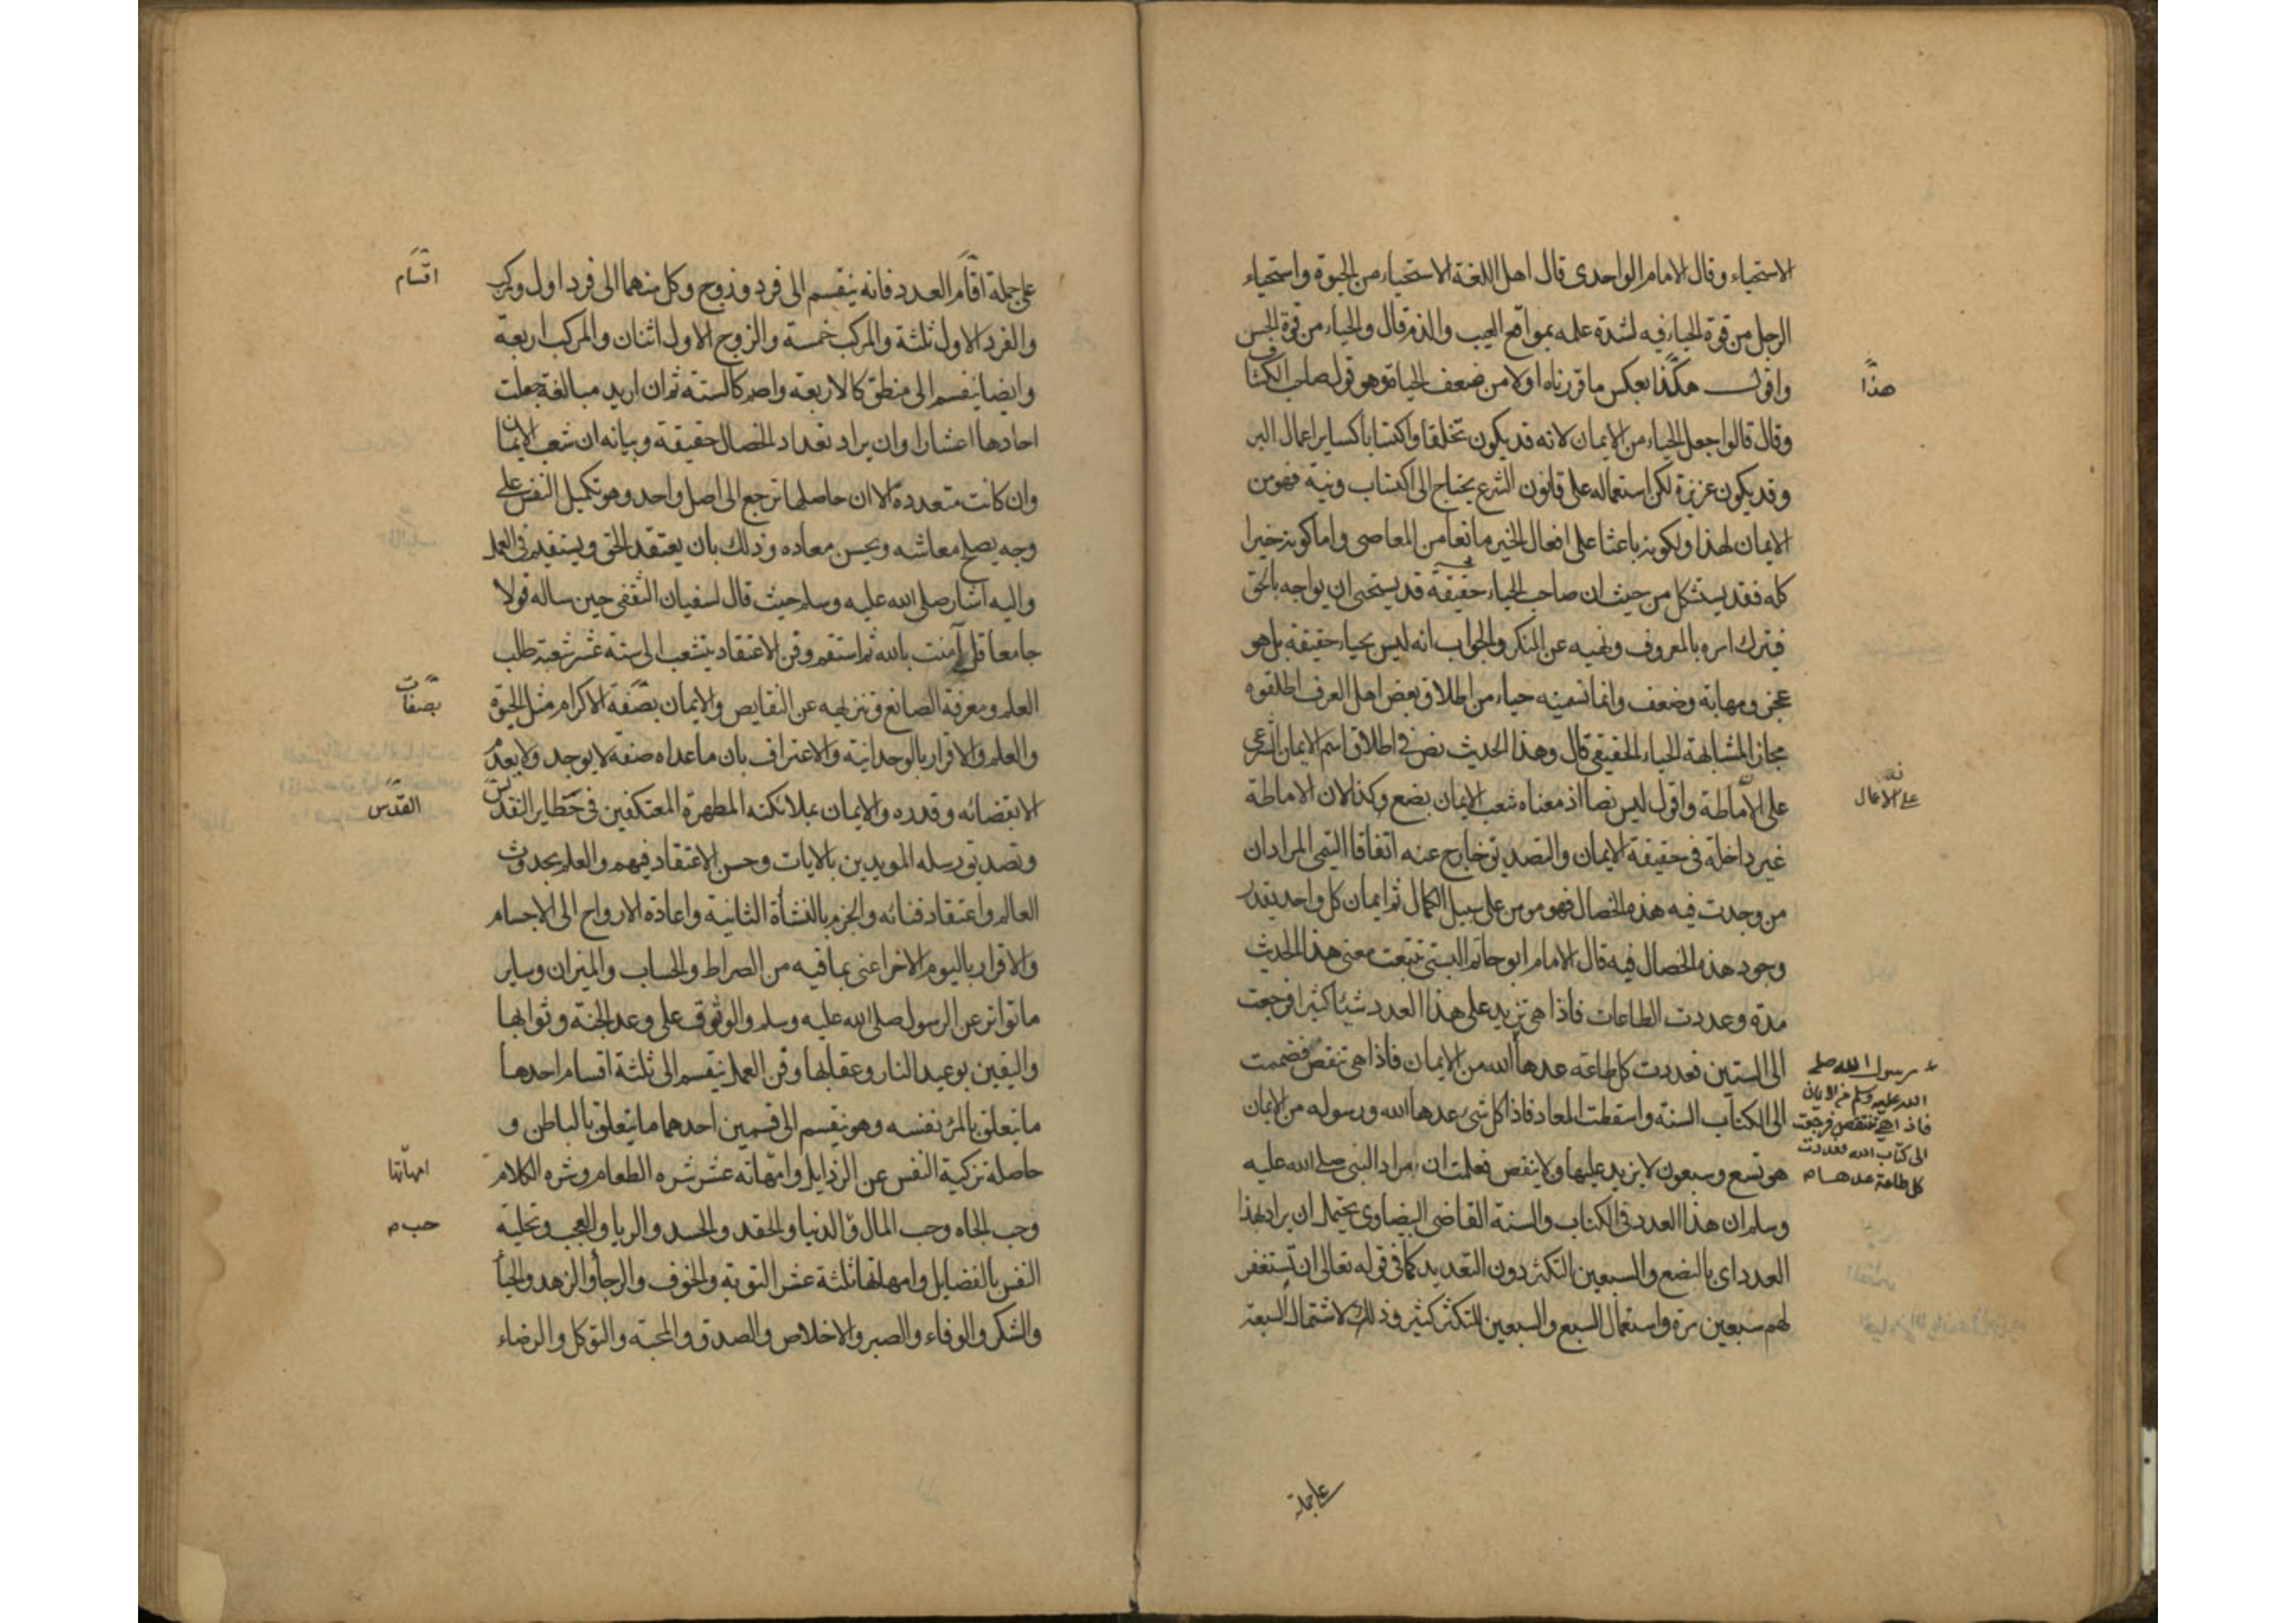 الاستحياء وقال الامام الواحدى قال اهل اللغة الاستحياء من الحيوة واستحياء
الرجل من قوة الحياء فيه لشدة علمه بمواقع العيب والذم قال والحياء من قوة الحس
واقول هكذا بعكس ما قررناه اولا من ضعف الحياة وهو قول صاحب الكشاف
هذا
وقال قالوا جعل الحياء من الايمان لانه قد يكون تخلقا واكتسابا كساير اعمال البر
وقد يكون غريزة لكن استعماله على قانون الشرع يحتاج الى اكتساب ونية فهو من
الايمان لهذا ولكونه باعثا على افعال الخير مانعا من المعاصى واما كونه خيرا
كله فقد يستشكل من حيث ان صاحب الحياء حقيقة قد يستحى ان يواجه بالحق
فيترك امره بالمعروف ونهيه عن المنكر والجواب انه ليس بحياء حقيقة بل هو
عجز ومهابة وضعف وانما تسميته حياء من اطلاق بعض اهل العرف اطلقوه
مجازا لمشابهة الحياء الحقيقى قال وهذا الحديث نص فى اطلاق اسم الايمان الشرعى
على الاماطة واقول ليس نصا اذ معناه شعب الايمان بضع وكذا لان الاماطة
على الاعمال
غير داخلة فى حقيقة الايمان والتصديق خارج عنه اتفاقا التيمى المراد ان
من وجدت فيه هذه الخصال فهو مومن على سبيل الكمال ثم ايمان كل واحد بقدر
وجود هذه الخصال فيه قال الامام ابو حاتم البستى تتبعت معنى هذا الحديث
مدة وعددت الطاعات فاذا هى تزيد على هذا العدد شيئا كثيرا فرجعت
الى الستين فعددت كل طاعة عدها الله من الايمان فاذا هى تنقص فضممت
رسول الله صلى
الله عليه وسلم من الايمان
فاذا هى تنقص فرجعت
الى كتاب الله فعددت
كل طاعة عدها
الى الكتاب السنة واسقطت المعاد فاذا كل شىء عدها الله ورسوله من الايمان
هو تسع وسبعون لا يزيد عليها ولا ينقص فعلمت ان مراد النبى صلى الله عليه
وسلم ان هذا العدد فى الكتاب والسنة القاضى البيضاوى يحتمل ان يراد بهذا
العدد اى بالبضع والسبعين التكثر دون التعديد كما فى قوله تعالى ان تستغفر
لهم سبعين مرة واستعمال السبع والسبعين للتكثر كثير وذلك لاشتمال السبعة
على جملة
على جملة اقسام العدد فانه ينقسم الى فرد وزوج وكل منهما الى فرد اول ومركب
اقسام
والفرد الاول ثلثة والمركب خمسة والزوج الاول اثنان والمركب اربعة
وايضا ينقسم الى منطق كالاربعة واصم كالستة ثم ان اريد مبالغة جعلت
احادها اعشارا وان يراد تعداد الخصال حقيقة وبيانه ان شعب الايمان
وان كانت متعددة الا ان حاصلها ترجع الى اصل واحد وهو تكميل النفس على
وجه يصلح معاشه ويحسن معاده وذلك بان يعتقد الحق ويستقيم فى العمل
واليه اشار صلى الله عليه وسلم حيث قال لسفيان الثقفى حين ساله قولا
جامعا قل آمنت بالله ثم استقم وفن الاعتقاد يتشعب الى ستة عشر شعبة طلب
العلم ومعرفة الصانع وتنزيهه عن النقايص والايمان بصفة الاكرام مثل الحيوة
بصفات
والعلم والاقرار بالوحدانية والاعتراف بان ما عداه صنعه لا يوجد ولا يعدم
الا بقضائه وقدره والايمان بملائكته المطهرة المعتكفين فى حظاير التقدس
القدس
وتصديق رسله المويدين بالايات وحسن الاعتقاد فيهم والعلم بحدوث
العالم واعتقاد فنائه والجزم بالنشأة الثانية واعادة الارواح الى الاجسام
والاقرار باليوم الاخر اعنى بما فيه من الصراط والحساب والميزان وساير
ما تواتر عن الرسول صلى الله عليه وسلم والوثوق على وعد الجنة وثوابها
واليقين بوعيد النار وعقابها وفن العمل ينقسم الى ثلثة اقسام احدها
ما يتعلق بالمرء نفسه وهو ينقسم الى قسمين احدهما ما يتعلق بالباطن و
حاصله تزكية النفس عن الرذايل وامهاته عشر شره الطعام وشره الكلام
امهاتها
وحب الجاه وحب المال والدنيا والحقد والحسد والريا والعجب وتحلية
حب
النفس بالفضايل وامهاتها ثلثة عشر التوبة والخوف والرجأ والزهد والحيأ
والشكر والوفاء والصبر والاخلاص والصدق والمحبة والتوكل والرضاء